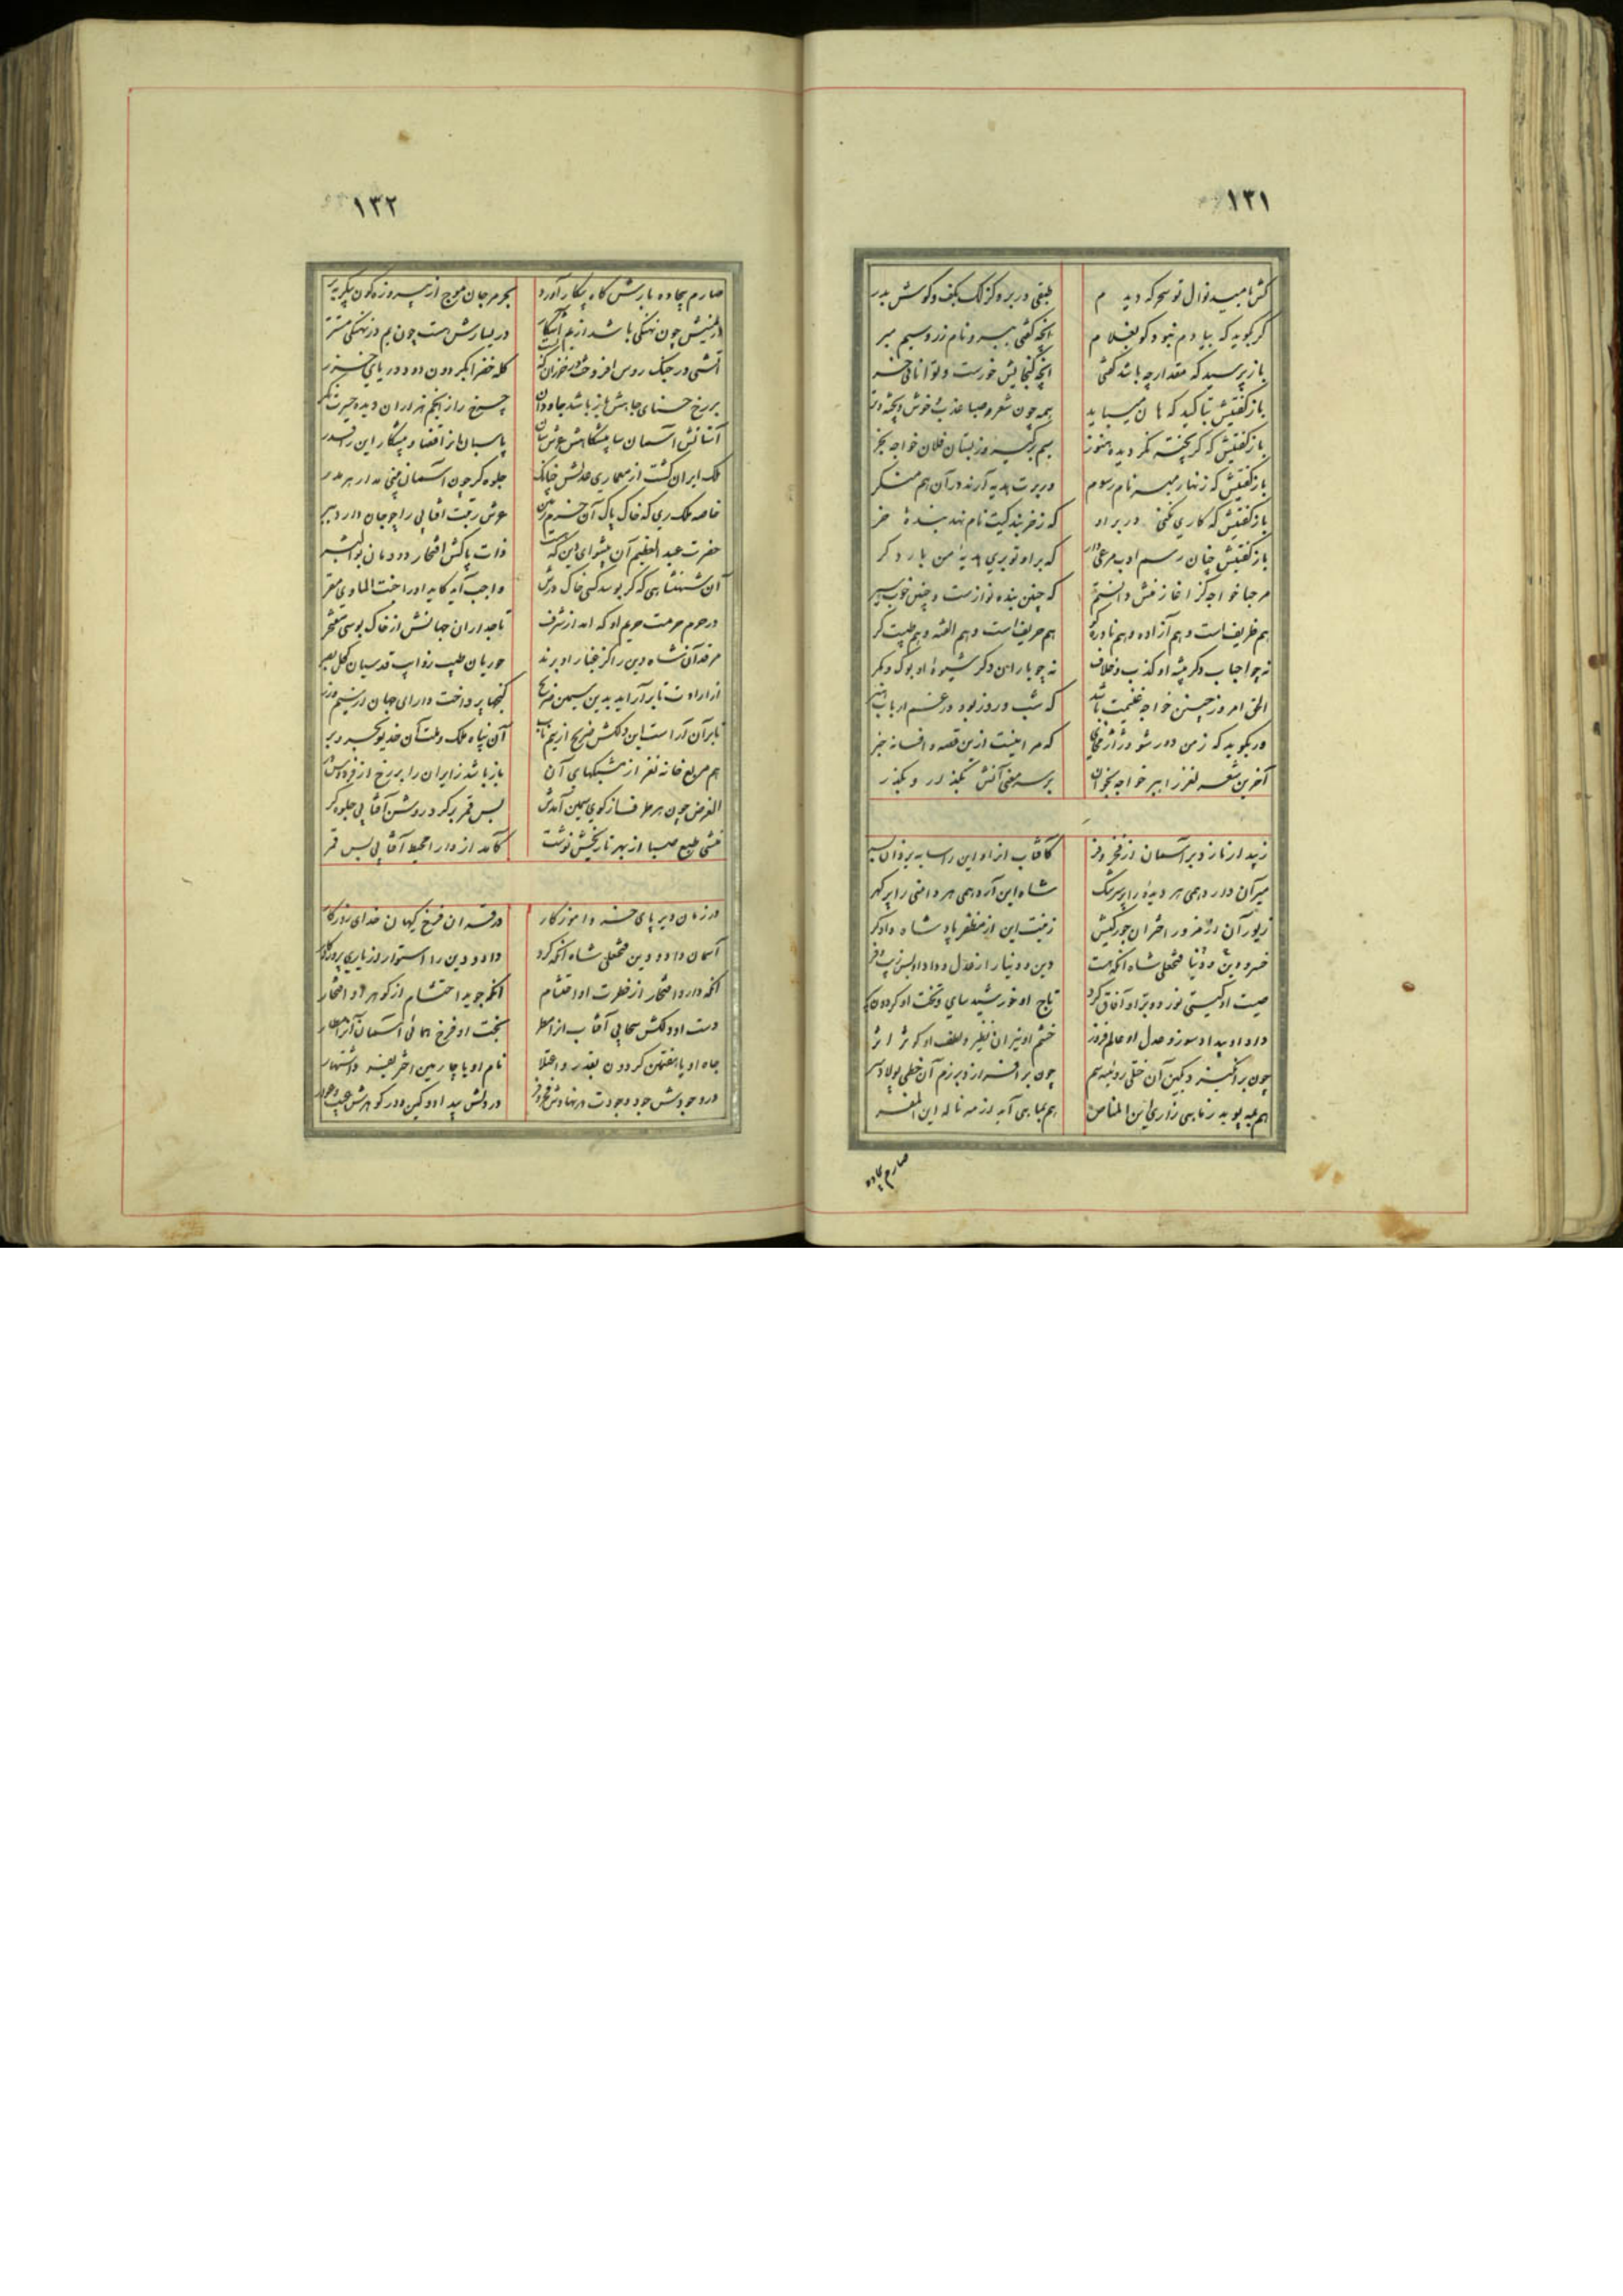 ۱۳۱
کش بامید نوال تو سحر که دیدم طبقی در بر و کزلک بکف و کوش بدر
کر بکوید که بیادم نبود کو بغلام آنچه کفتی ببر و نام زر و سیم مبر
باز پرسید که مقدار چه باشد کفتی آنچه کنجایش خورست و توانائی خر
باز کفتیش بتاکید که هان میباید همه چون شعر صبا عذب و خوش و پخته و تر
باز کفتیش که کر پخته نکردیده هنوز
باز کفتیش که زنهار مبر نام رسوم ور برت هدیه آرند در آن هم منکر
باز کفتیش که کاری نکنی در بر او که ز خربندکیت نام نهد بنده خر
باز کفتیش چنان رسم ادب مرعی دار که بر او تو بری هدیه من بار دکر
مرحبا خواجه کز اغاز منش دانستم که چنین بنده نوازست و چنین خوب سیر
هم ظریف است و هم آزاده و هم نادره کو هم حریف است و هم الفته و هم طیبت کر
نه چو احباب دکر پیشه او کذب و خلاف نه چو یاران دکر شیوه او بوک و مکر
الحق امروز چنین خواجه غنیمت باشد که شب و روز بود در غم ارباب هنر
ور بکوید که ز من دور شو و ژاژ مخای که مرا نیست ازین قصه و افسانه خبر
آخرین شعر نغز از بر خواجه بخوان بر سر معنی آنش بکذار و بکذر
زیبد ار نازد بر آسمان از فخر و فر کافتاب از او این را سایه یزدان بسر
میر آن دارد همی هر دیده را پر سرشک شاه این آرد همی هر دامنی را پر کهر
زیور آن از فر اختران جور کیش زینت این از مظفر پادشاه دادکر
خسرو دین و دنیا فتحعلی شاه انکه هست دین و دنیا را ز عدل و داد او بس زیب و فر
صیت او کیتی نورد و بر او آفاق کرد تاج او خورشید سای و تخت او کردون
داد او بیداد سوز و عدل او عالم فروز خشم او نیران نظیر و لطف او کوثر اثر
چون بر انکیزد بکین آن ختلی روئینه سم چون بر افرازد برزم آن خطی پولاد سر
هم به پوید ز ماهی زاری این المناص هم بماهی آید از مه ناله این المفر
صارم بجاده
۱۳۲
صارم بجاده بارش کاه پیکار آورد بحر مرجان موج از پیروزه کون پیکر پدید
در یمینش چون نهنکی باشد از یم آشکار در یسارش هست چون یم در نهنکی مستتر
آتشی در جنک روس افروخت در خزران که کله خضرا بکردون دود دریای خزر
بر رخ حسنای جاهش باز باشد جاودان چرخ را ز انجم هزاران دیده حیرت نکر
آستانش آسمان سا پیشکاهش عرش سان پاسبان از قضا و پیشکار این را قدر
ملک ایران کشت از معماری عدلش چنانک جلوه کر چون آسمان بینی مدار هر مدر
خاصه ملک ری که خاک پاک آن خرم زمین عرش رتبت آفتابی را چو جان دارد ببر
حضرت عبدالعظیم آن پیشوای دین که هست ذات پاکش افتخار دودمان بوالبشر
آن شهنشاهی که کر بوسد کسی خاک درش واجب آید کاید او را جنت الماوی مقر
در حرم حرمت حریم او که امد از شرف تاجداران جهانش از خاک بوسی مفتخر
مرقد آن شاه دین را کز غبار او برند حوریان طیب ذوایب قدسیان کحل بصر
از ارادت تا بر آراید بدین سیمین ضریح کنجها پرداخت دارای جهان از سیم و زر
تا بر آن آراست این دلکش ضریح از سیم ناب آن پناه ملک و ملت آن خدیو بحر و بر
هم مربع خانه نغز از شبکهای آن باز باشد ز ایران را بر رخ از فردوس در
الغرض چون هر طرف از کوی سیمین آمدش بس قمر بر کرد روشن آفتابی جلوه کر
منشی طبع صبا از بهر تاریخش نوشت کامد از دار محیط آفتابی بس قمر
در زمان دیر پای خسرو اموزکار در قران فرخ کیهان خدای روزکار
آسمان داد و دین فتحعلی شاه آنکه کرد داد و دین را استوار از یاری پروردکار
انکه دارد افتخار از فطرت او احتشام انکه جوید احتشام از کوهر او افتخار
دست او دلکش سحابی آفتاب از امطار بخت او فرخ همائی آسمان
جاه او با هفتمین کردون بقدر و اعتلا نام او با چارمین اختر بفر و اشتهار
در وجودش جود وجودت در نهادش فخر و فر در دلش بیداد و کین و در کوهرش عیب و عوار